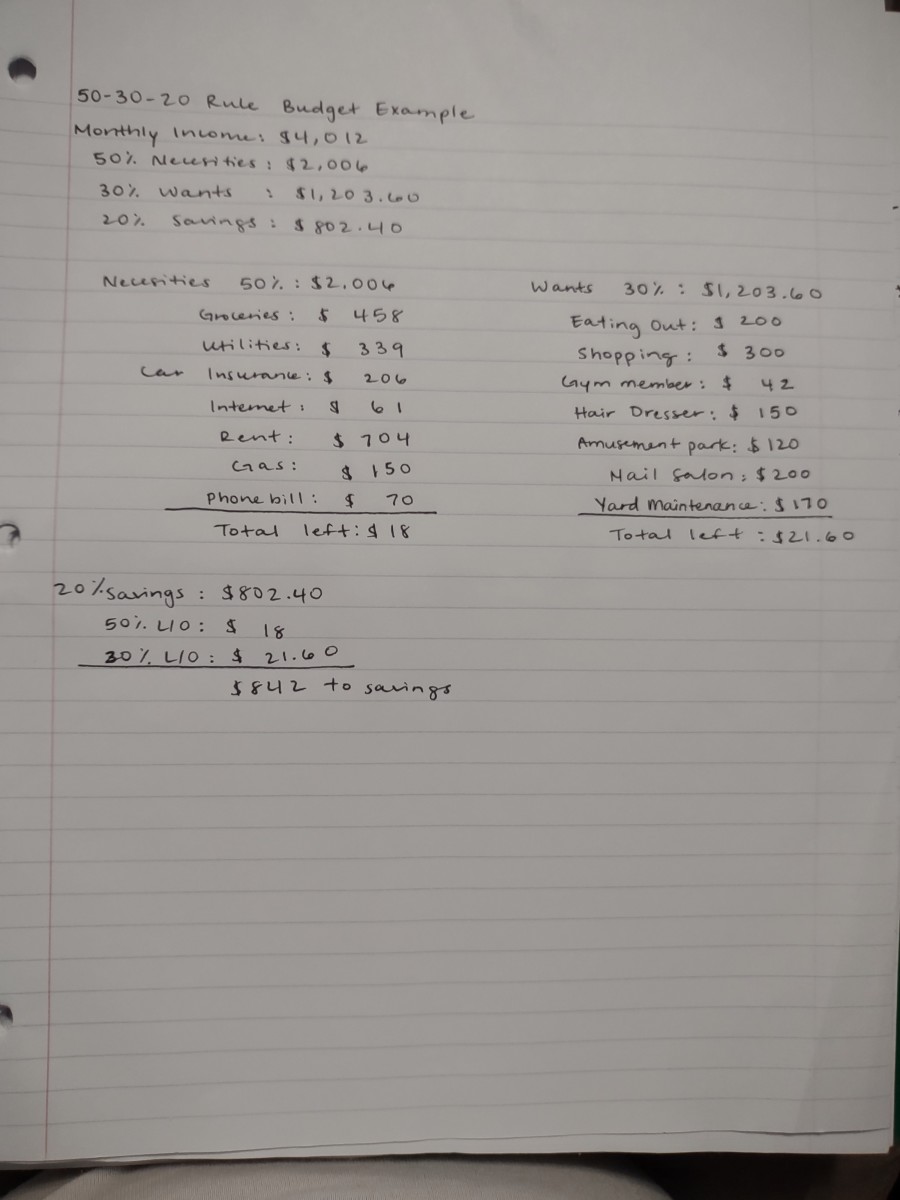 50-30-20 Rule Budget Example
Monthly Income: $4,012
50% Necesities: $2,006
30% Wants : $1,203.60
20% Savings: $802.40
Necesities 50%: $2,006
Groceries: $ 458
Utilities: $ 339
Car Insurance: $ 206
Internet: $ 61
Rent: $ 704
Gas: $ 150
Phone bill: $ 70
Total left: $ 18
Wants 30%: $1,203.60
Eating Out: $ 200
Shopping: $ 300
Gym member: $ 42
Hair Dresser: $ 150
Amusement park: $ 120
Nail Salon: $200
Yard Maintenance: $ 170
Total left: $21.60
20% Savings: $802.40
50% L/O: $ 18
30% L/O: $ 21.60
$842 to savings